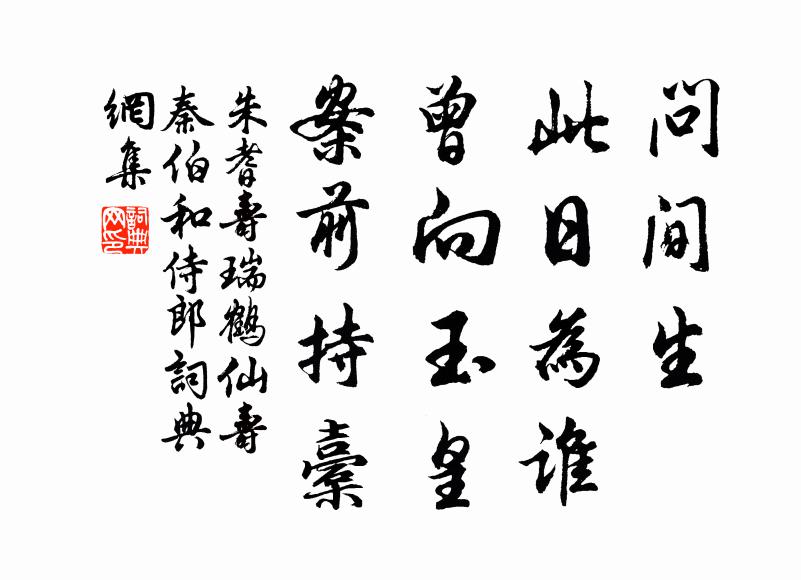 問間生
此日為誰
曾向玉皇
案前持橐
朱耆壽瑞鶴仙壽
秦伯和侍郎詞典
網集
詞典
网印